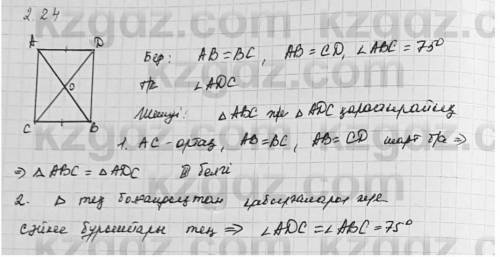 2.24
A D
O
C B
Бер: AB=BC, AB=CD, ∠ABC=75°
т/к ∠ADC
Шешуі: △ABC және △ADC қарастырайық
1. AC-ортақ, AB=BC, AB=CD шарт б/ша ⇒
⇒ △ABC = △ADC III белгі
2. △ тең болғандықтан қабырғалары және
сәйкес бұрыштары тең ⇒ ∠ADC=∠ABC=75°
kzgdz.com